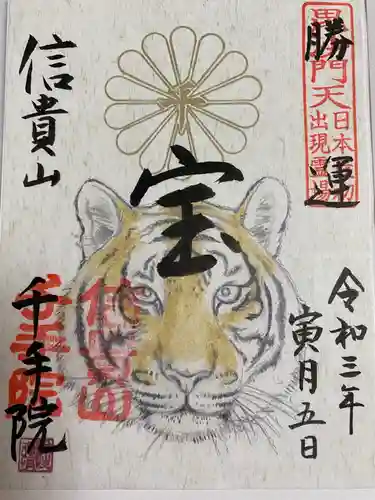 毘沙門天
日本最初
出現霊場
勝運
令和三年
寅月五日
宝
信貴山
千手院